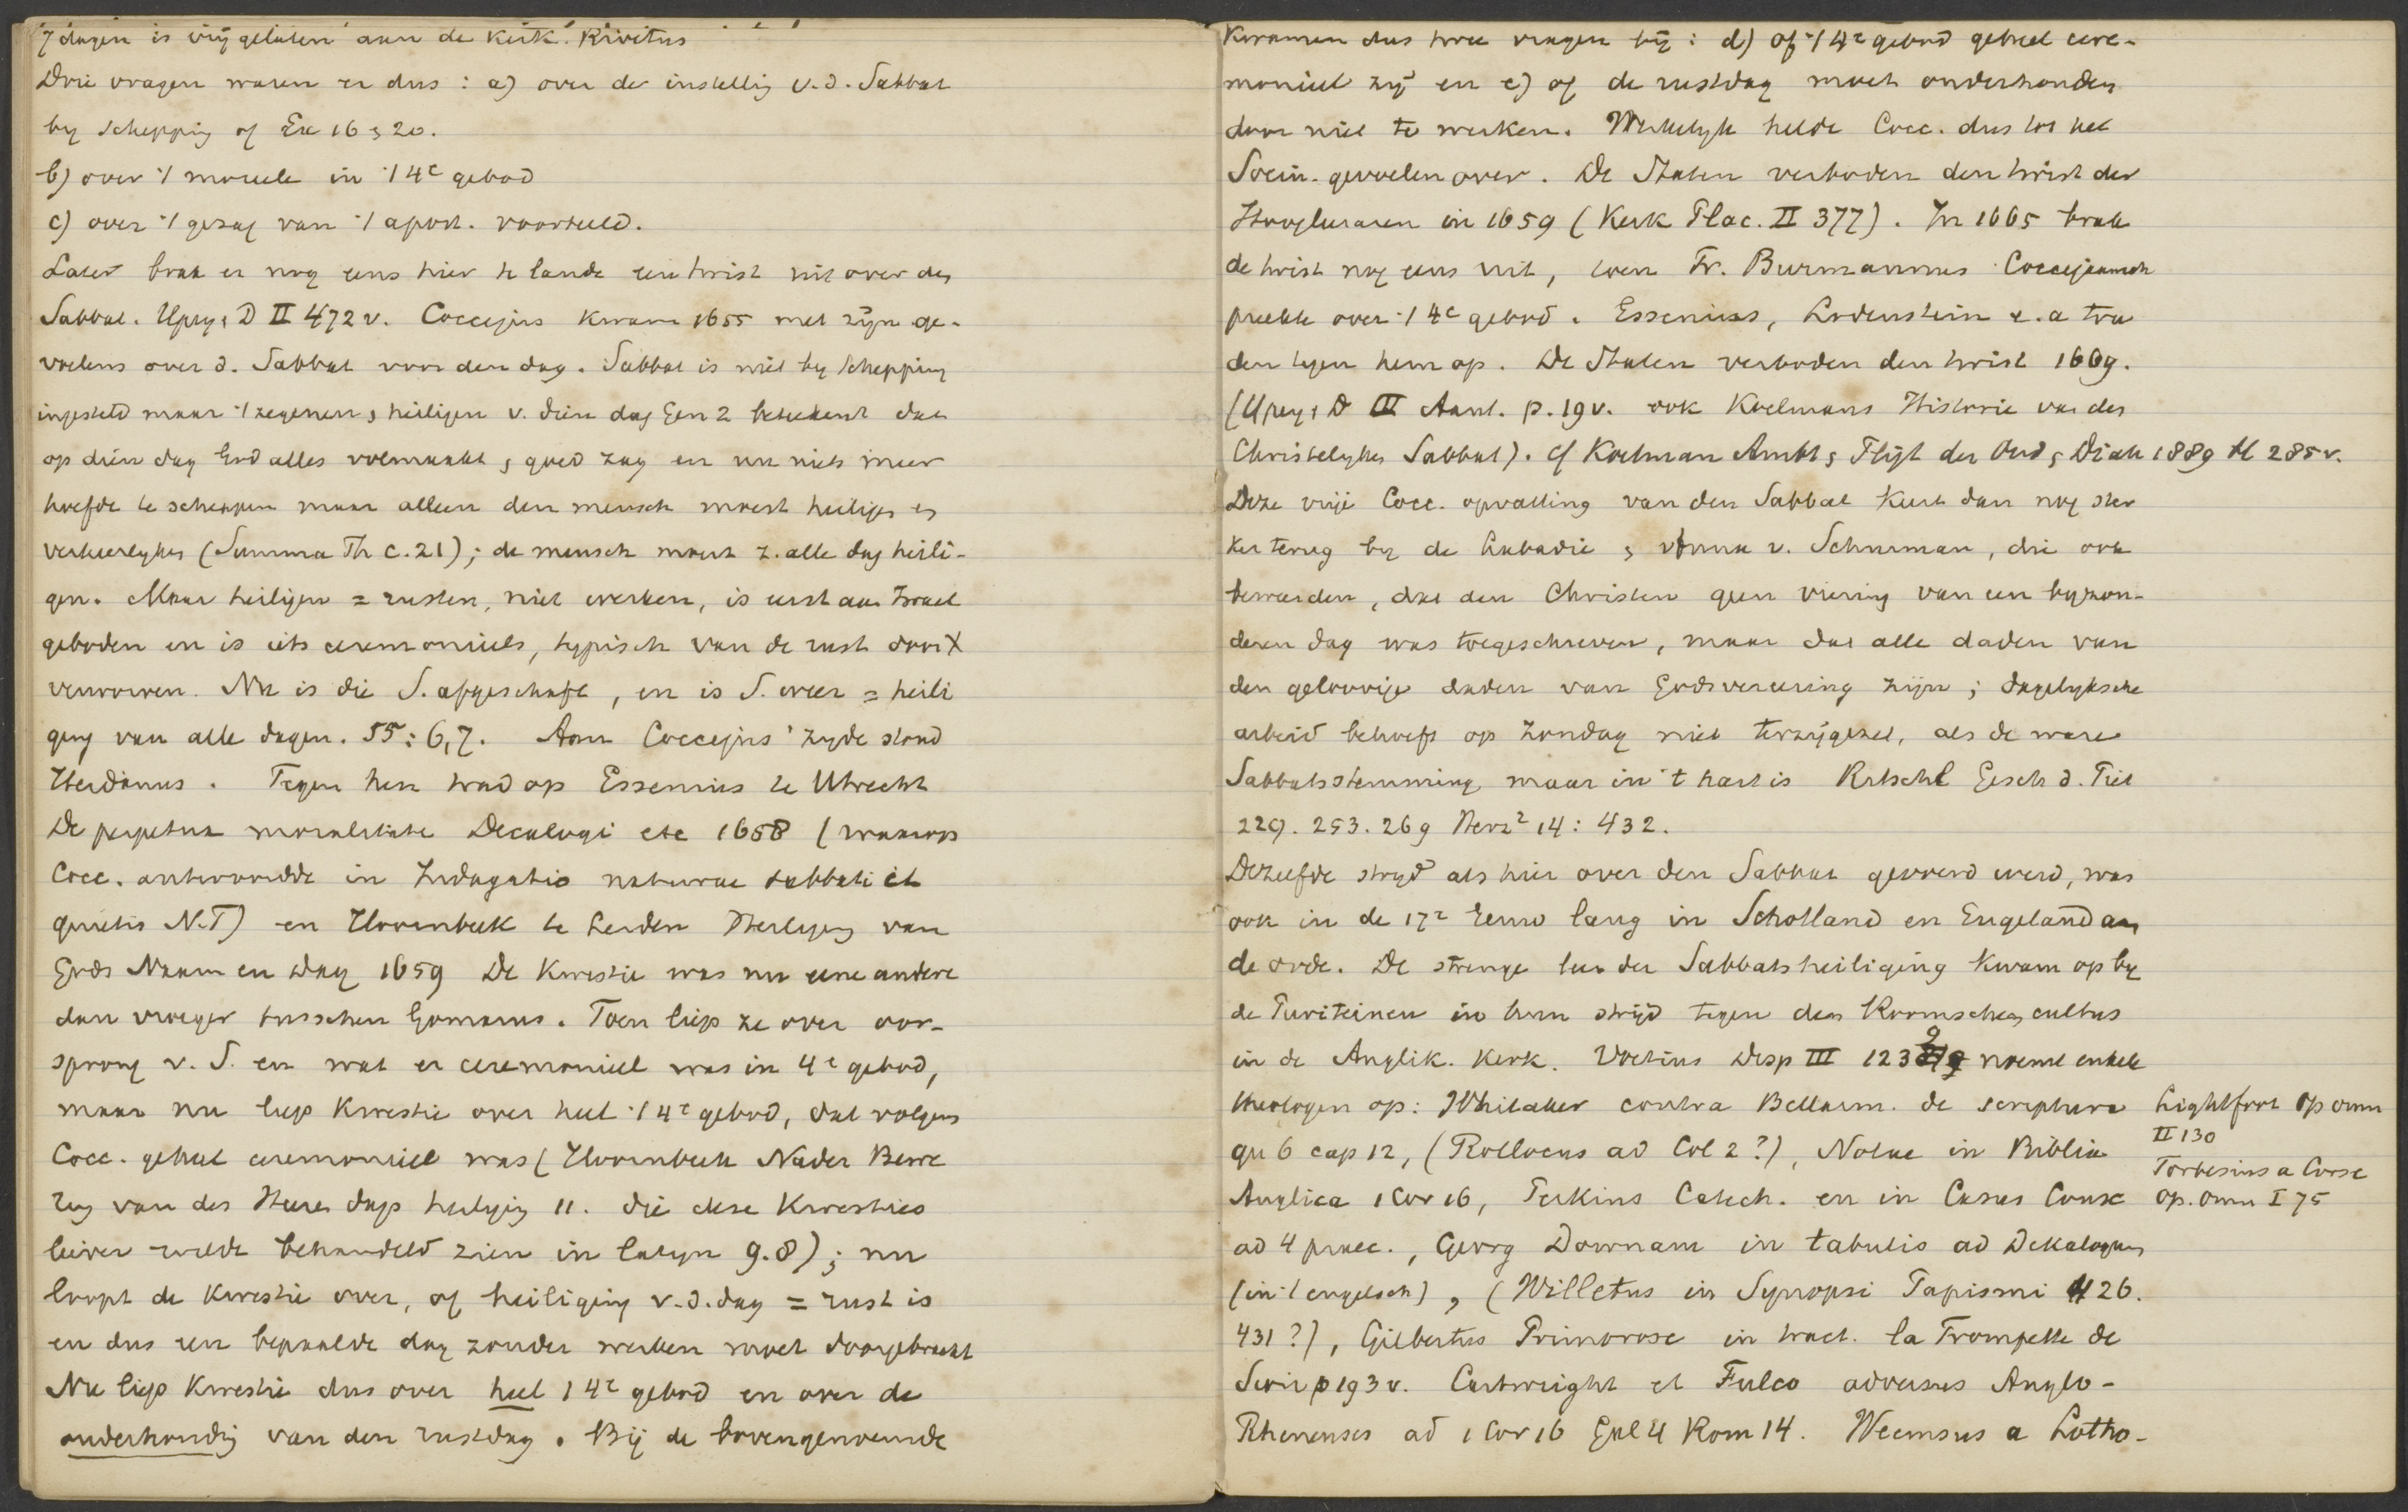 7 dagen is vrij gelaten aan de kerk. Rivetus
Drie vragen waren er dus : a) over de instellig v.d. Sabbat
by schepping of Ex 16 & 20.
b) over 't moreele in 't 4e gebod
c) over 't gezag van 't apost. voorbeeld.
Later brak er nog eens hier te lande een twist uit over den
Sabbat. Ypey & D II 472 v. Coccejus kwam 1655 met zijn ge-
voelens over d. Sabbat voor den dag. Sabbat is niet by schepping
ingesteld maar 't zegenen & heiligen v. dien dag Gen 2 beteekent dat
op dien dag God alles volmaakt & goed zag en nu niets meer
hoefde te scheppen maar alleen den mensch moest heiligen en
verheerlyken (Summa Th c. 21); de mensch moest z. alle dag heili-
gen. Maar heiligen = rusten, niet werken, is eerst aan Israel
geboden en is iets ceremonieels, typisch van de rust door X
verworven. Nu is die S. afgeschaft, en is S. weer = heili
ging van alle dagen. 55 : 6,7. Aan Coccejus' zyde stond
Heidanus. Tegen hen trad op Essenius te Utrecht
De perpetua moralitate Decalogi etc 1658 (waarop
Cocc. antwoordde in Indagatio naturae sabbati et
quietis N.T) en Hoornbeek te Leiden Heiliging van
Gods Naam en Dag 1659 De kwestie was nu eene andere
dan vroeger tusschen Gomarus. Toen liep ze over oor-
sprong v. S. en wat er ceremonieel was in 4e gebod,
maar nu liep kwestie over heel 't 4e gebod, dat volgens
Cocc. geheel ceremonieel was (Hoornbeek Nader Bewe
ring van des Heeren dags heiliging 11. die deze kwesties
liever wilde behandeld zien in latyn 9.8); nu
loopt de kwestie over, of heiliging v.d. dag = rust is
en dus een bepaalde dag zonder werken moet doorgebracht
Nu liep kwestie dus over heel 't 4e gebod en over de
onderhoudig van den rustdag. Bij de bovengenoemde
kwamen dus twee vragen bij : d) of 't 4e gebod geheel cere-
monieel zij en e) of de rustdag moet onderhouden
door niet te werken. Werkelyk helde Cocc. dus tot het
Socin. gevoelen over. De Staten verboden den twist der
Hoogleraren in 1659 (Kerk Plac. II 377). In 1665 brak
de twist nog eens uit, toen Fr. Burmannus Coccejaansch
preekte over 't 4e gebod. Essenius, Lodenstein e. a tra
den tegen hem op. De Staten verboden den twist 1669.
(Ypey & D III Aant. p. 19 v. ook Koelmans Historie van den
Christelyken Sabbat). cf Koelman Ambt & Pligt der Oud & Diak 1889 bl 285 v.
Deze vrije Cocc. opvatting van den Sabbat keert dan nog ster
ker terug by de Labadie & Anna v. Schurman, die ook
beweerden, dat den Christen geen viering van een byzon-
deren dag was toegeschreven, maar dat alle daden van
den geloovige daden van Godsvereering zijn ; dagelyksche
arbeid behoeft op Zondag niet terzijgezet, als de ware
Sabbatsstemming maar in 't hart is Ritschl Gesch d. Piet
229. 253. 269 Herz² 14 : 432.
Dezelfde stryd als hier over den Sabbat gevoerd werd, was
ook in de 17e Eeuw lang in Schotland en Engeland aan
de orde. De strenge leer der Sabbatsheiliging kwam op by
de Puriteinen in hun strijd tegen den Roomschen cultus
in de Anglik. Kerk. Voetius Disp III 1239 noemt enkele
theologen op : Whitaker contra Bellarm. de scriptura
qu 6 cap 12, (Rollocus ad Col 2 ?), Notae in Biblia
Anglica 1 Cor 16, Perkins Catech. en in Casus Consc
ad 4 praec., Georg Downam in tabulis ad Dekalogum
(in 't engelsch), (Willetus in Synopsi Papismi 426.
431 ?), Gilbertus Primrose in tract. la Trompette de
Sion p 193 v. Cartwright et Fulco adversus Anglo-
Rhemenses ad 1 Cor 16 Gal 4 Rom 14. Weemsus a Lotho-
Lightfoot Op omn
II 130
Forbesius a Corse
op. omn I 75